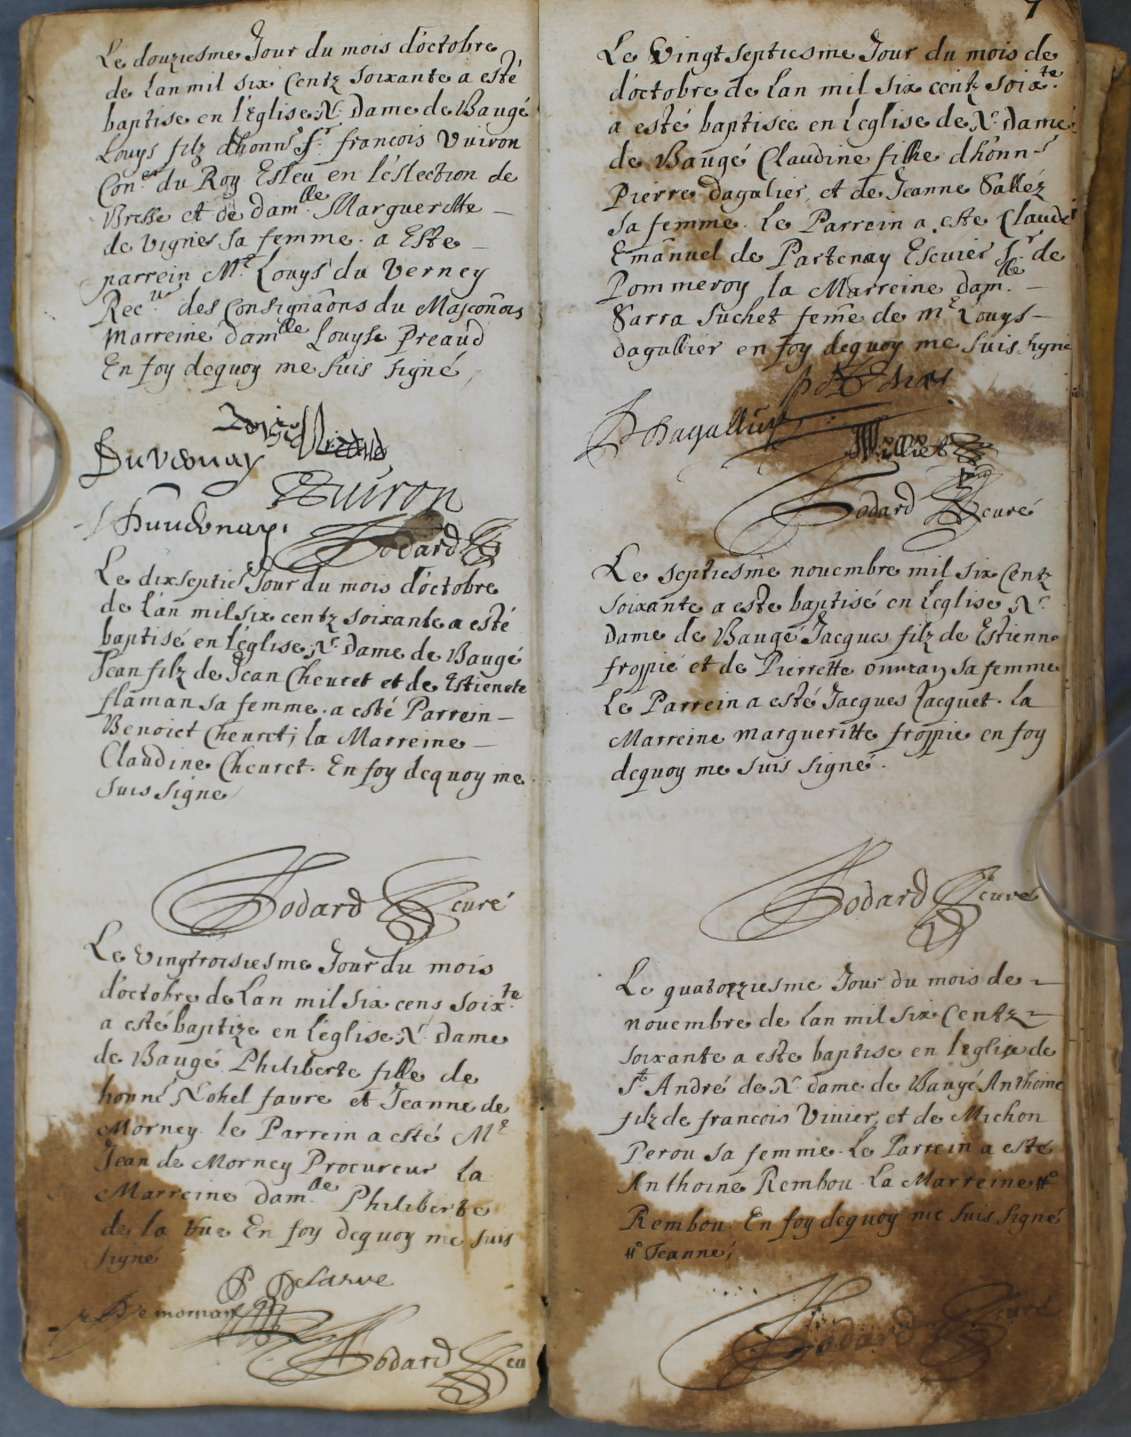 Le douziesme Jour du mois d'octobre
de Lan mil six Centz soixante a esté
baptise en l'Eglise N. Dame de Baugé
Louys filz d'honn. Sr. francois Vuiron
Con.er du Roy Esleu en l'eslection de
Bresse et de dam.lle Marguerette –
de Vignes sa femme. a Este –
parrein M.e Louys du Verney
Rec.ur des Consignaôns du Masconnois
Marreine dam.lle Louyse Preaud
En foy dequoy me suis signé
Duvernay
Vuiron
Duvernay.
Bodard
Le dixsepties. Jour du mois d'octobre
de L'an mil six centz soixante a esté
baptisé en l'église N. Dame de Baugé
Jean filz de Jean Cheuret et de Estienete
flaman sa femme. a esté Parrein –
Benoict Cheuret; la Marreine –
Claudine Cheuret. En foy dequoy me
suis signe
Bodard curé
Le vingtroisiesme Jour du mois
d'octobre de Lan mil six cens soix.te
a esté baptize en l'église N. Dame
de Baugé Philiberte fille de
honn. Nohel favre et Jeanne de
Morney. le Parrein a esté M.e
Jean de Morney Procureur la
Marreine dam.lle Philiberte
de la Rue En foy dequoy me suis
signé
P Delarue
Demornay
Bodard cu
7
Le Vingt septiesme Jour du mois de
d'octobre de Lan mil six centz soix.te
a esté baptisée en l'eglise de N. Dame
de Baugé Claudine fille d'honn.
Pierre Dagalier, et de Jeanne Sallez
sa femme. Le Parrein a esté Claude
Emânuel de Partenay Escuier Sr de
Pommeroy la Marreine dam.lle –
Sarra Suchet feme de M.e Louys –
dagallier en foy dequoy me suis signé
Dagallier
Milliet
Bodard curé
Le septiesme novembre mil six Centz
soixante a este baptisé en l'eglise N.
Dame de Baugé Jacques filz de Estienne
froppié et de Pierrette sa femme
Le Parrein a esté Jacques Jacquet. la
Marreine margueritte froppie en foy
dequoy me suis signé.
Bodard curé
Le quatorziesme Jour du mois de –
novembre de Lan mil six Centz –
soixante a este baptise en l'eglise de
St. André de N. dame de Baugé Anthoine
filz de francois Vivier, et de Michon
Perou sa femme. Le Parrein a esté
Anthoine Rembou. La Marreine #
Rembou. En foy dequoy me suis signé
# Jeanne;
Bodard curé